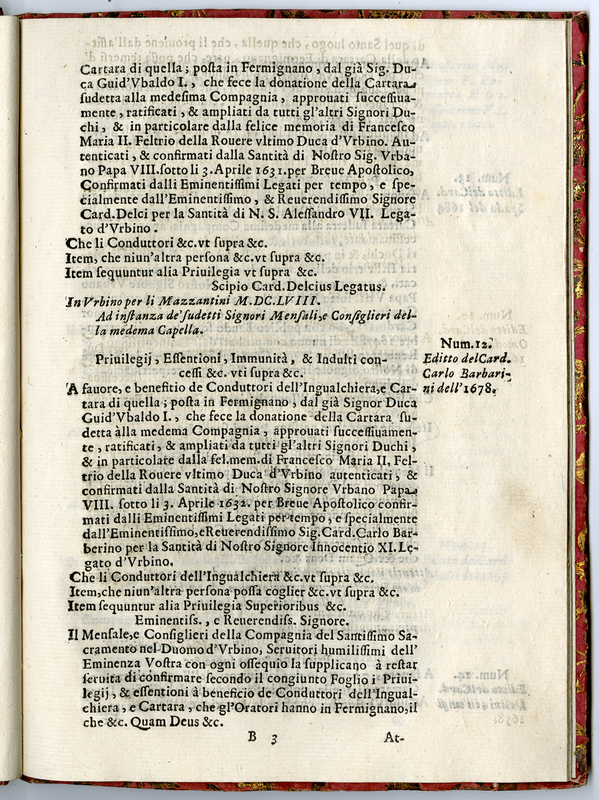 Cartara di quella; posta in Fermignano, dal già Sig. Du-
ca Guid'Vbaldo I., che fece la donatione della Cartara
sudetta alla medesima Compagnia, approuati successiua-
mente, ratificati, & ampliati da tutti gl'altri Signori Du-
chi, & in particolare dalla felice memoria di Francesco
Maria II. Feltrio della Rouere vltimo Duca d'Vrbino. Au-
tenticati, & confirmati dalla Santità di Nostro Sig. Vrba-
no Papa VIII. sotto li 3. Aprile 1631. per Breue Apostolico,
Confirmati dalli Eminentissimi Legati per tempo, e spe-
cialmente dall'Eminentissimo, & Reuerendissimo Signore
Card. Delci per la Santità di N. S. Alessandro VII. Lega-
to d'Vrbino.
Che li Conduttori &c. vt supra &c.
Item, che niun'altra persona &c. vt supra &c.
Item sequuntur alia Priuilegia vt supra &c.
Scipio Card. Delcius Legatus.
In Vrbino per li Mazzantini M.DC.LVIII.
Ad instanza de' sudetti Signori Mensali, e Consiglieri del-
la medema Capella.
Num. 12.
Editto del Card.
Carlo Barbari-
ni dell' 1678.
Priuilegij, Essentioni, Immunità, & Indulti con-
cessi &c. vti supra &c.
A fauore, e benefitio de Conduttori dell'Ingualchiera, e Car-
tara di quella; posta in Fermignano, dal già Signor Duca
Guid'Vbaldo I., che fece la donatione della Cartara su-
detta àlla medema Compagnia, approuati successiuamen-
te, ratificati, & ampliati da tutti gl'altri Signori Duchi,
& in particolare dalla fel. mem. di Francesco Maria II. Fel-
trio della Rouere vltimo Duca d'Vrbino autenticati, &
confirmati dalla Santità di Nostro Signore Vrbano Papa
VIII. sotto li 3. Aprile 1632. per Breue Apostolico confir-
mati dalli Eminentissimi Legati per tempo, e specialmente
dall'Eminentissimo, e Reuerendissimo Sig. Card. Carlo Bar-
berino per la Santità di Nostro Signore Innocentio XI. Le-
gato d'Vrbino.
Che li Conduttori dell'Ingualchiera &c. vt supra &c.
Item, che niun'altra persona possa coglier &c. vt supra &c.
Item sequuntur alia Priuilegia Superioribus &c.
Eminentiss., e Reuerendiss. Signore.
Il Mensale, e Consiglieri della Compagnia del Santissimo Sa-
cramento nel Duomo d'Vrbino, Seruitori humilissimi dell'
Eminenza Vostra con ogni ossequio la supplicano à restar
seruita di confirmare secondo il congiunto Foglio i Priui-
legij, & essentioni à beneficio de Conduttori dell'Ingual-
chiera, e Cartara, che gl'Oratori hanno in Fermignano, il
che &c. Quam Deus &c.
B 3
At-